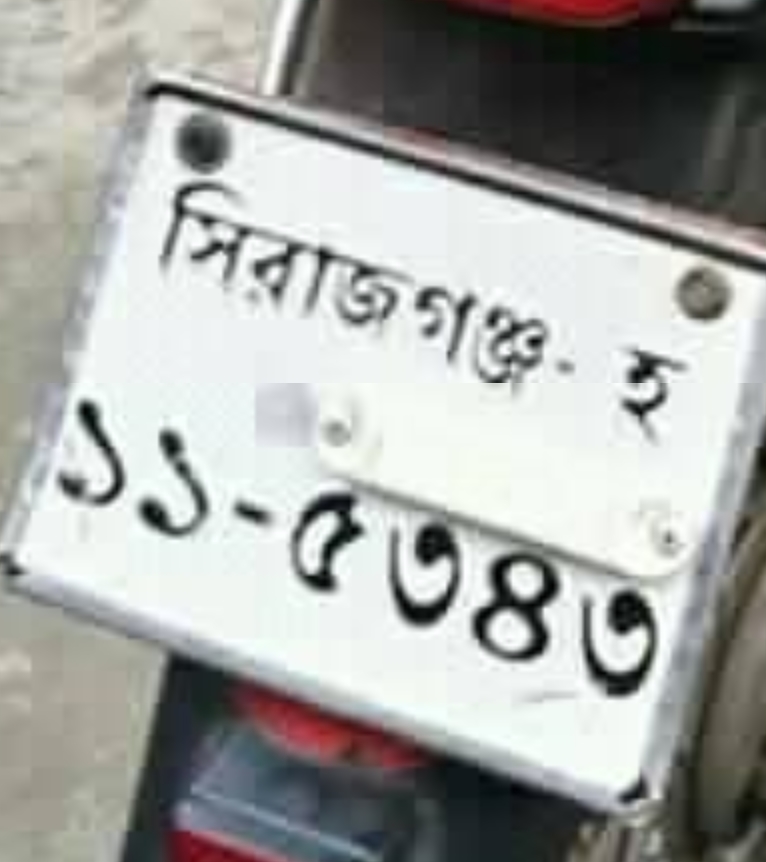 সিরাজগঞ্জ- হ
১১-৫৩৪৩